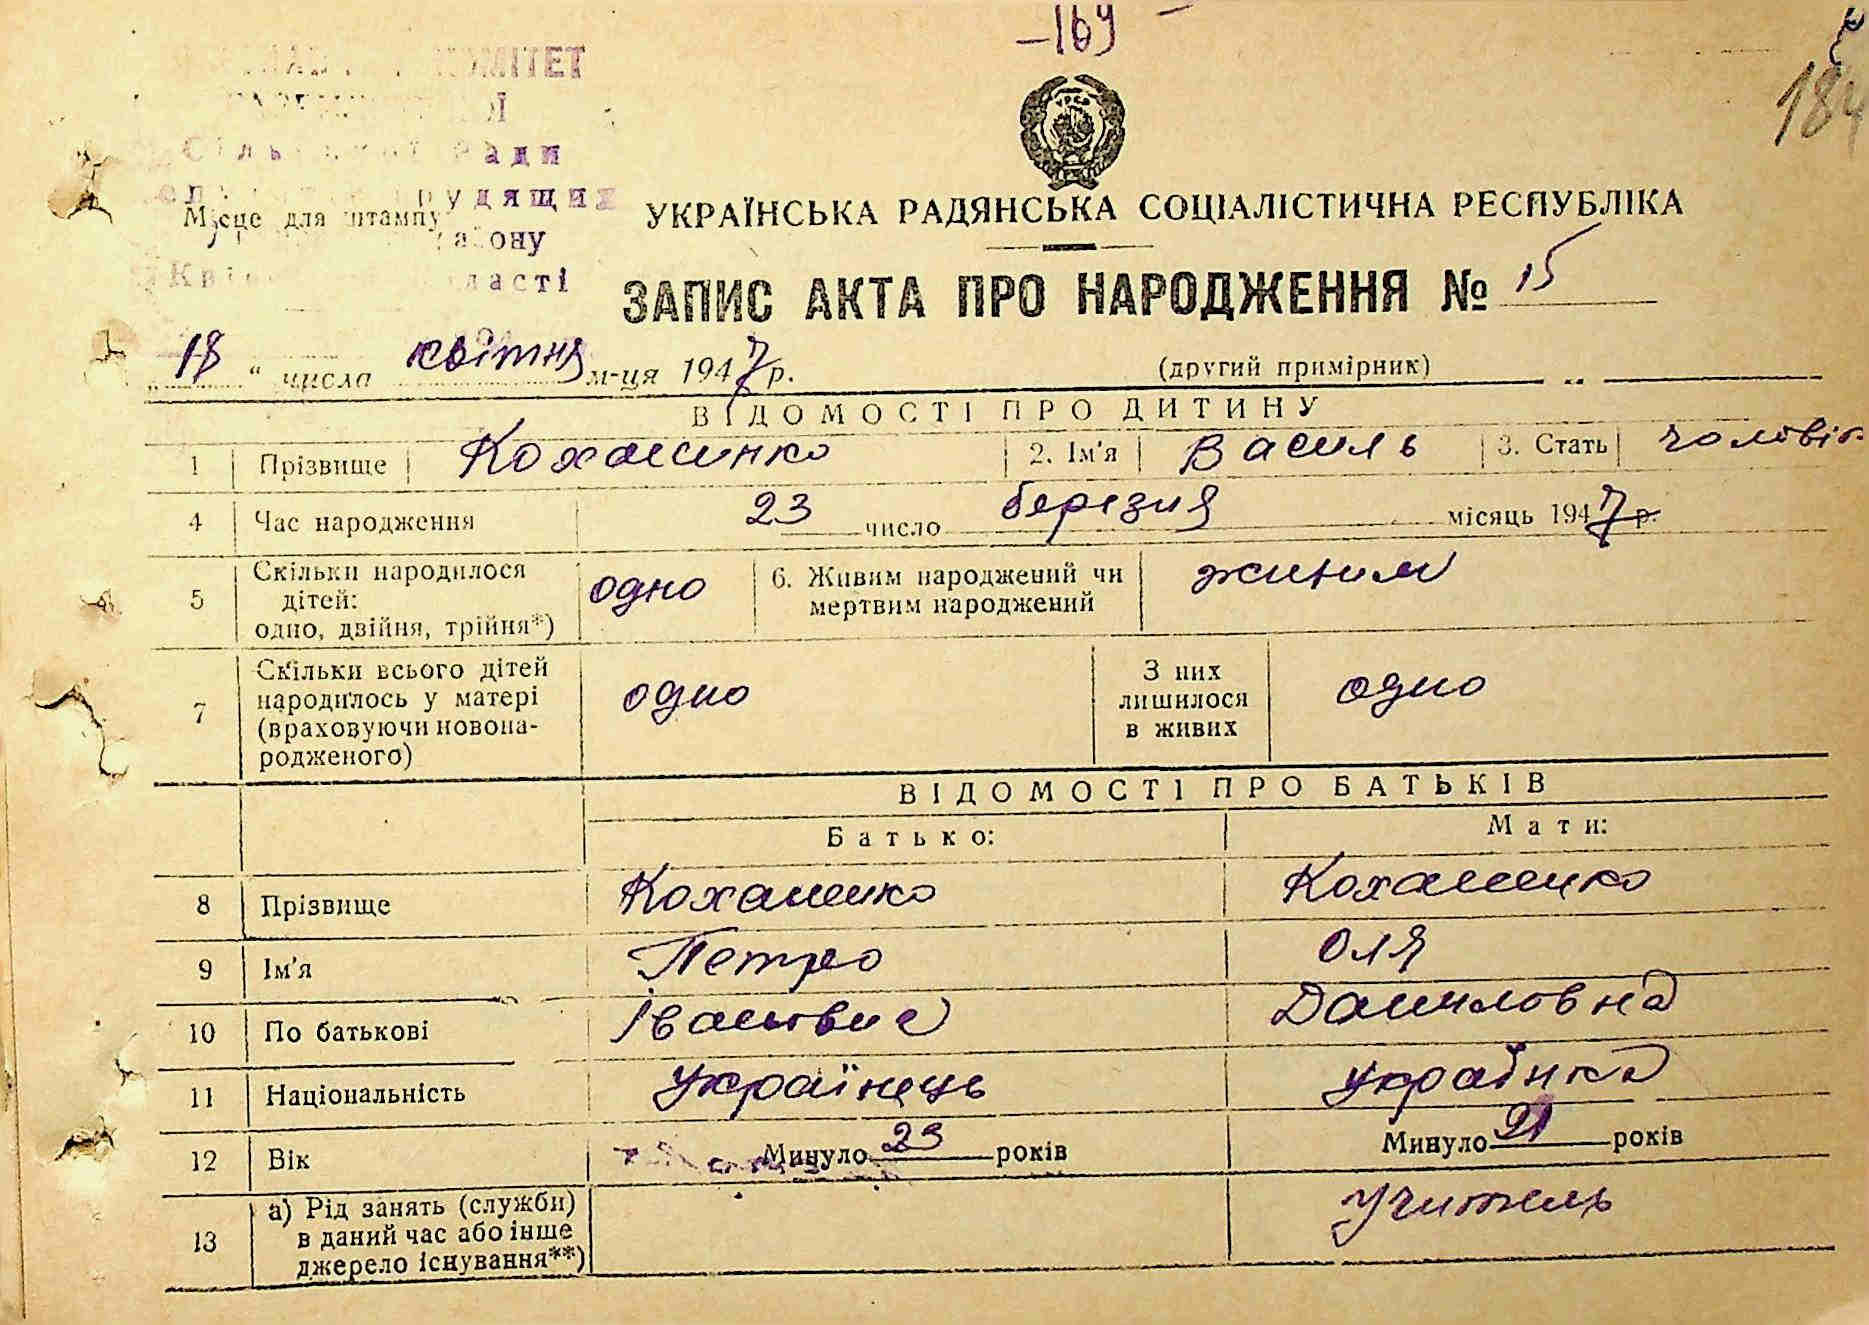 – 169 –
184
КОМІТЕТ
Ради
трудящих
Місце для штампу
району
області
УРСР
УКРАЇНСЬКА РАДЯНСЬКА СОЦІАЛІСТИЧНА РЕСПУБЛІКА
ЗАПИС АКТА ПРО НАРОДЖЕННЯ № 15
„18“ числа квітня м-ця 1947 р. (другий примірник)
ВІДОМОСТІ ПРО ДИТИНУ
1 Прізвище Коханенко 2. Ім'я Василь 3. Стать чоловіч.
4 Час народження 23 число березня місяць 1947 р.
5 Скільки народилося дітей: одно, двійня, трійня*) одно 6. Живим народжений чи мертвим народжений живим
7 Скільки всього дітей народилось у матері (враховуючи новонародженого) одно З них лишилося в живих одно
ВІДОМОСТІ ПРО БАТЬКІВ
Батько: Мати:
8 Прізвище Коханенко Коханенко
9 Ім'я Петро Оля
10 По батькові Іванович Даниловна
11 Національність Українець українка
12 Вік Минуло 23 років Минуло 21 років
13 а) Рід занять (служби) в даний час або інше джерело існування**) Учитель